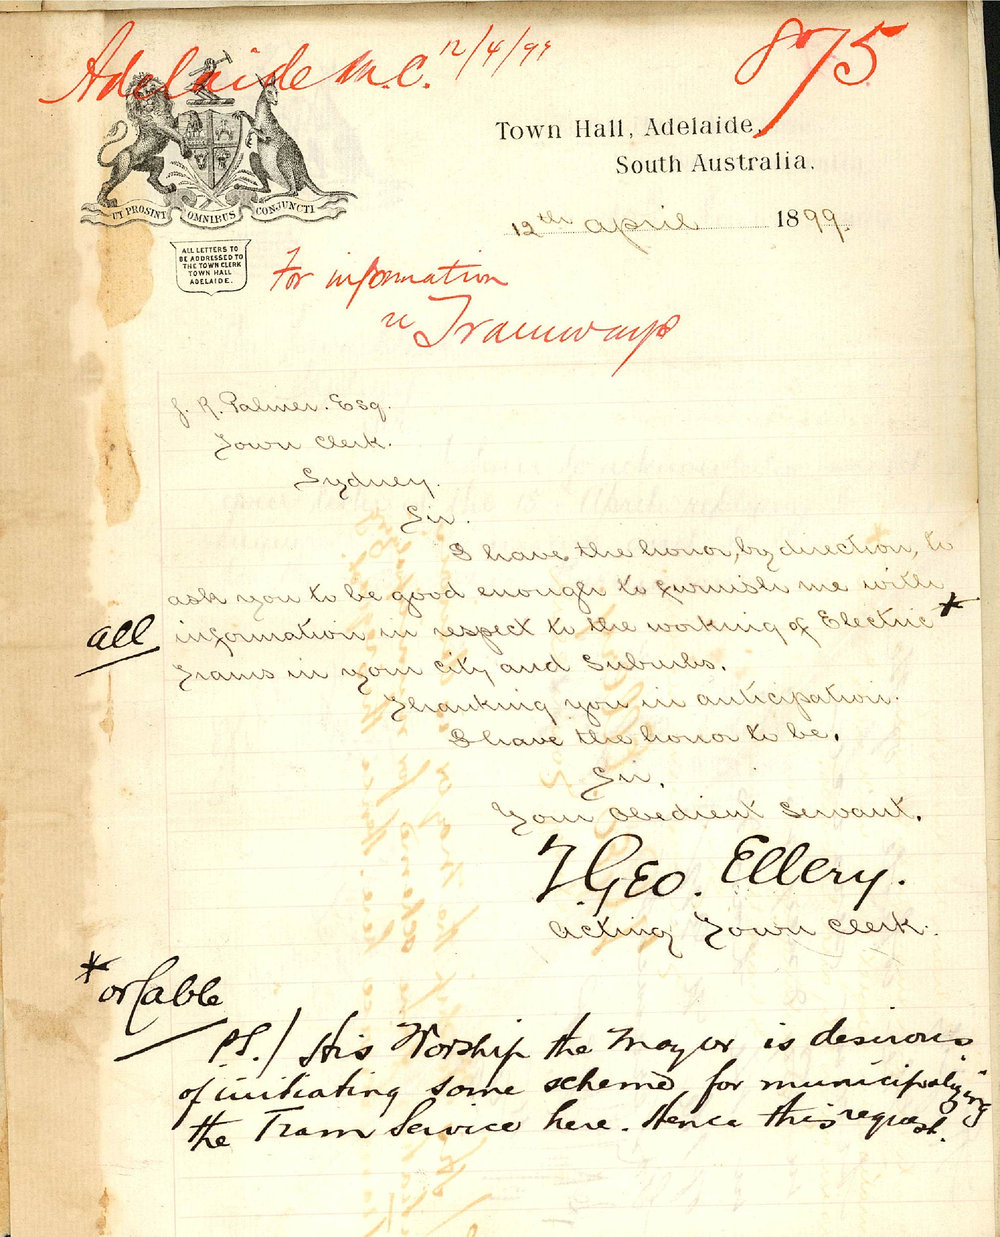 Adelaide M.C. 12/4/99
875
Town Hall, Adelaide,
South Australia.
UT PROSINT OMNIBUS CONJUNCTI
12th April 1899.
ALL LETTERS TO
BE ADDRESSED TO
THE TOWN CLERK
TOWN HALL
ADELAIDE.
For information
re Tramways
J. R. Palmer. Esq.
Town Clerk.
Sydney.
Sir.
I have the honor, by direction, to
ask you to be good enough to furnish me with
all information in respect to the working of Electric *
Trams in your city and Suburbs.
Thanking you in anticipation.
I have the honor to be,
Sir,
Your obedient Servant,
T. Geo. Ellery.
Acting Town Clerk.
* or Cable
P.S./ His Worship the Mayor is desirous
of initiating some scheme for municipalizing
the Tram Service here. Hence this request.